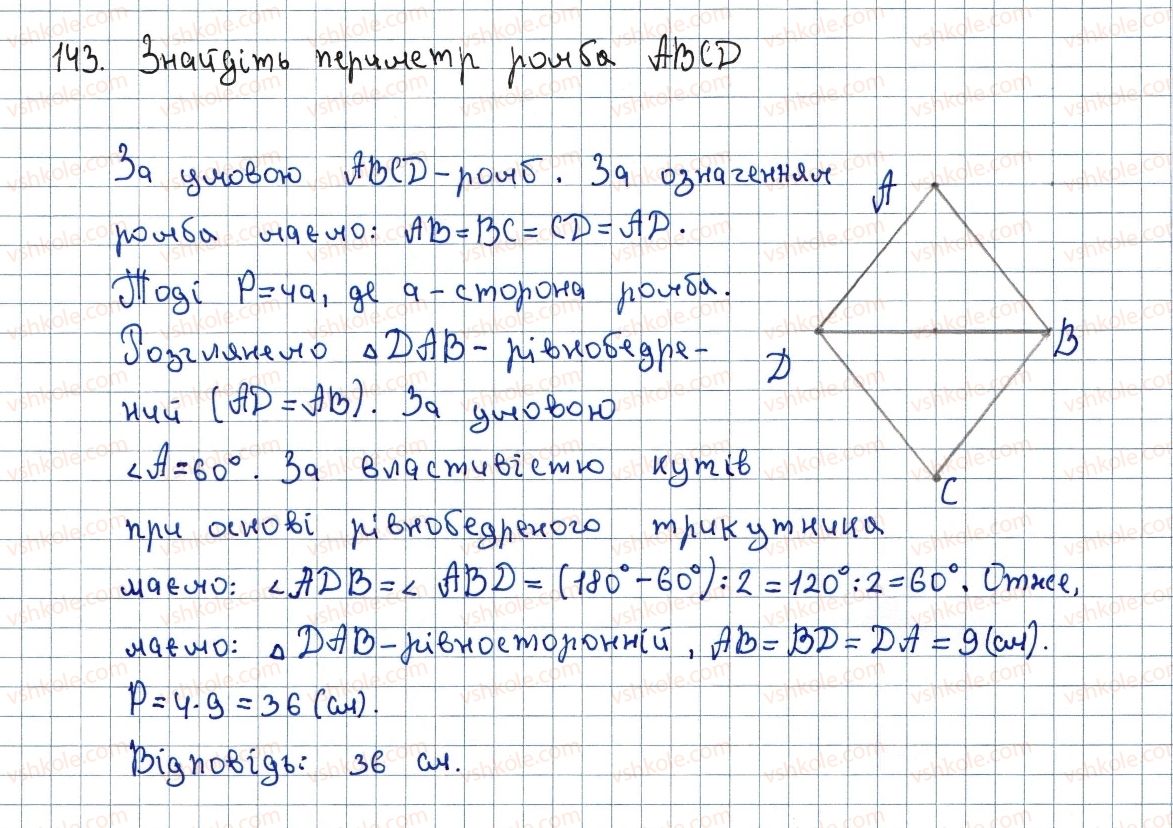 143. Знайдіть периметр ромба ABCD
За умовою ABCD - ромб. За означенням
ромба маємо: AB = BC = CD = AD.
Тоді P = 4a, де a - сторона ромба.
Розглянемо △ DAB - рівнобедре-
ний (AD = AB). За умовою
∠A = 60°. За властивістю кутів
при основі рівнобедреного трикутника
маємо: ∠ADB = ∠ABD = (180° - 60°) : 2 = 120° : 2 = 60°. Отже,
маємо: △ DAB - рівносторонній, AB = BD = DA = 9 (см).
P = 4 · 9 = 36 (см).
Відповідь: 36 см.
A
B
D
C
vshkole.com